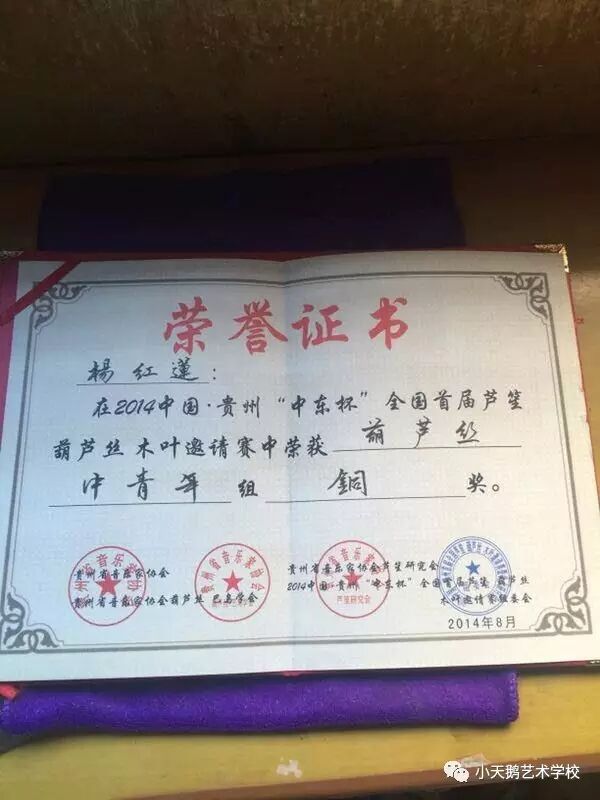 荣誉证书
楊红蓮：
在2014中国·贵州“中东杯”全国首届芦笙
葫芦丝 木叶邀请赛中荣获 葫芦丝
中青年 组 銅 奖。
贵州省音乐家协会
贵州省音乐家协会芦笙研究会
贵州省音乐家协会葫芦丝 巴乌学会
2014中国·贵州“中东杯”全国首届芦笙 葫芦丝
木叶邀请赛组委会
2014年8月
小天鹅艺术学校